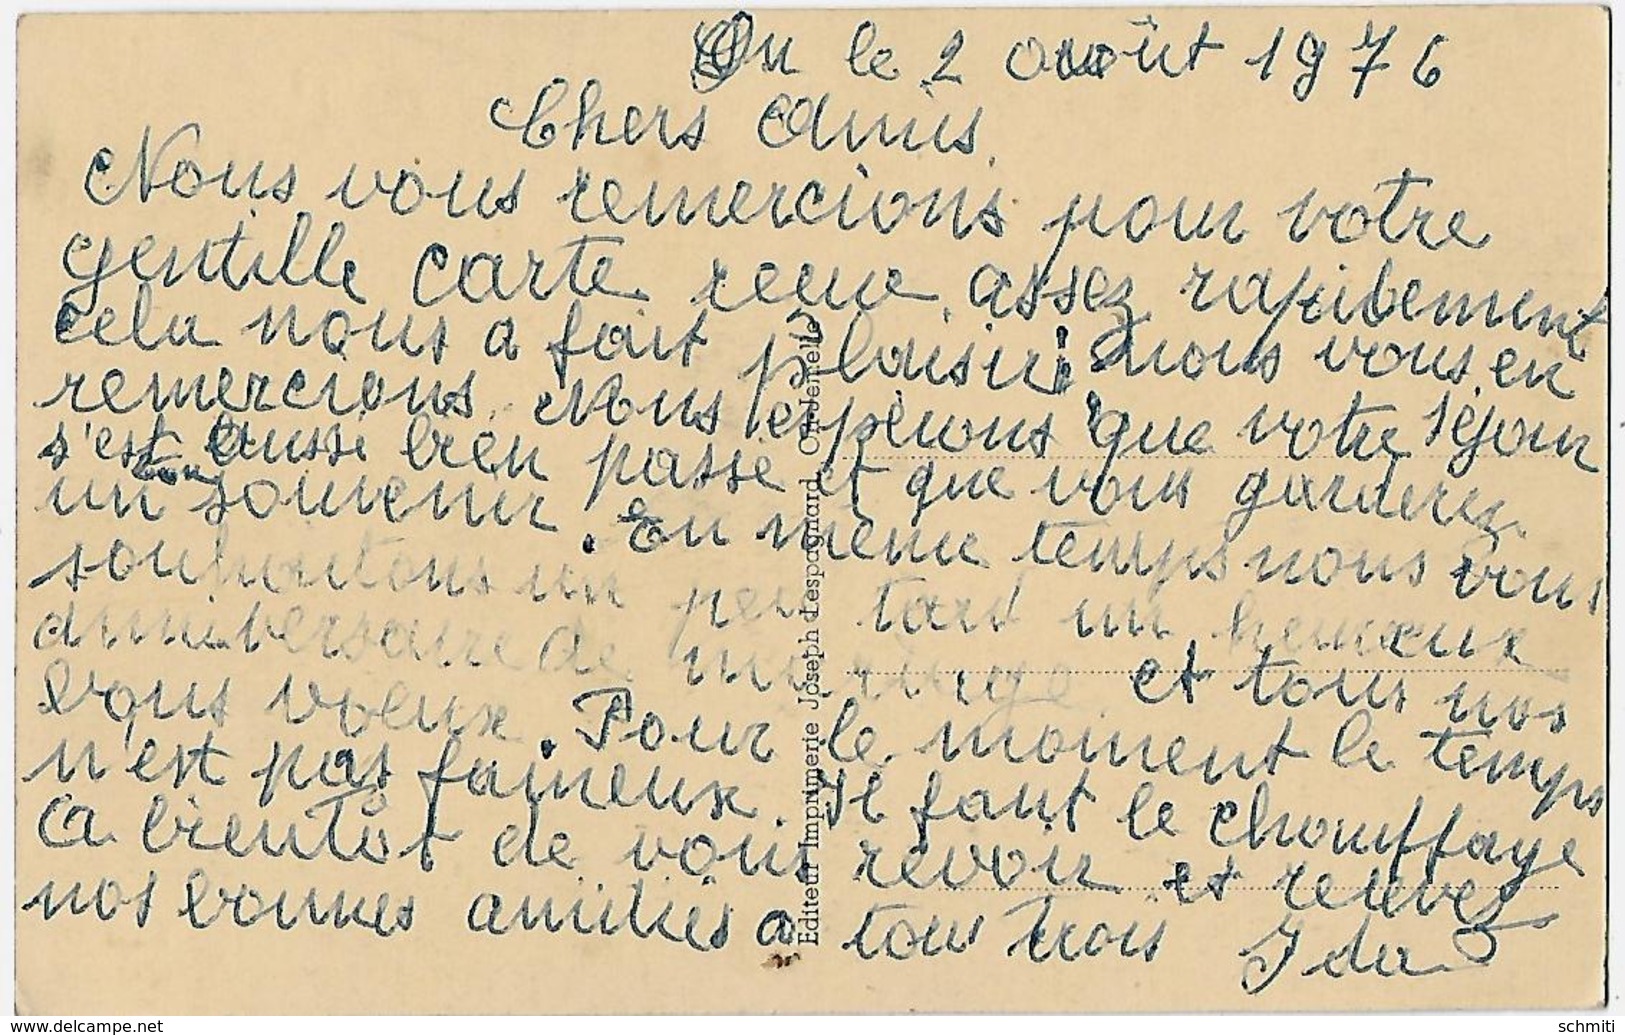 On le 2 août 1976
Chers Amis.
Nous vous remercions pour votre
gentille carte recue assez rapidement
cela nous a fait plaisir, nous vous en
remercions. Nous espérons que votre séjour
s'est aussi bien passé et que vous garderez
un bon souvenir. En même temps nous vous
souhaitons un peu tard un heureux
anniversaire de mariage et tous nos
bons voeux. Pour le moment le temps
n'est pas fameux. Il faut le chauffage
A bientôt de vous revoir et recevez
nos bonnes amitiés a tous trois Ida
Editeur Imprimerie Joseph Lespagnard, On-Jemelle
www.delcampe.net
schmiti